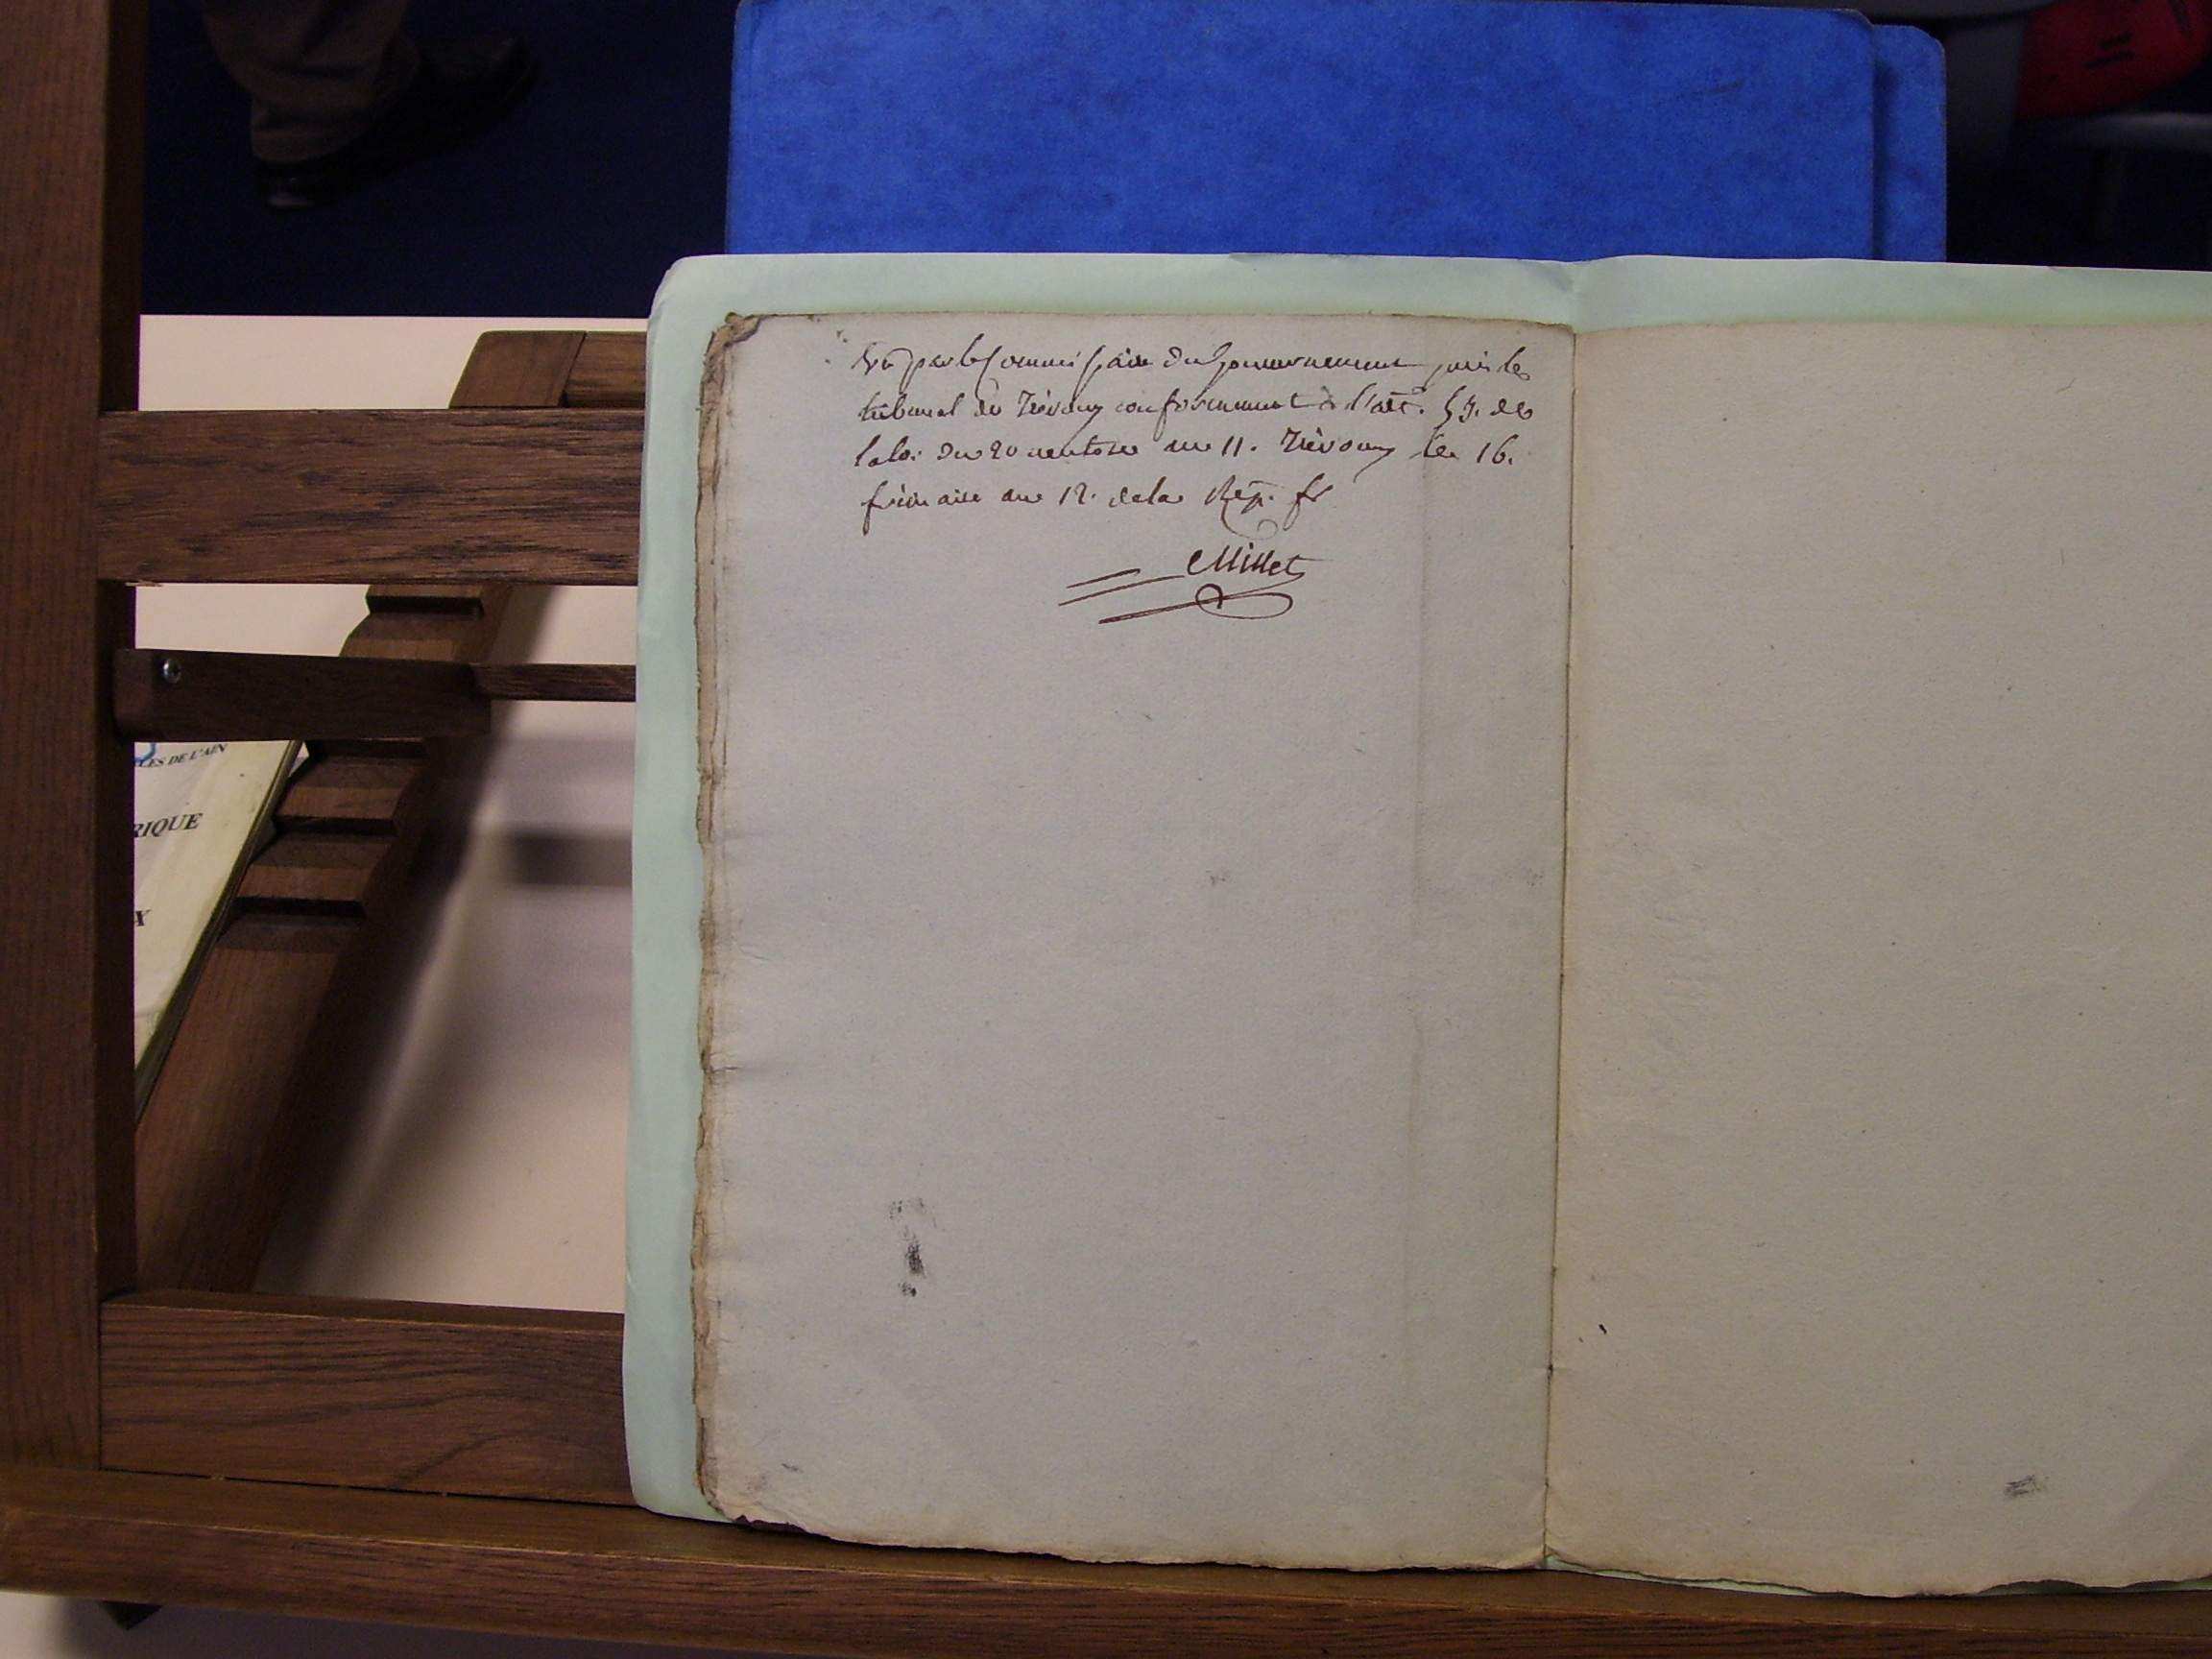 Vu par le Commissaire du Gouvernement près le
tribunal de Trévoux conformément à l'art. 53. de
la loi du 20 ventose an 11. Trévoux le 16.
frimaire an 12. de la Rép. fr
Millet
LES DE L'AIN
RIQUE
X